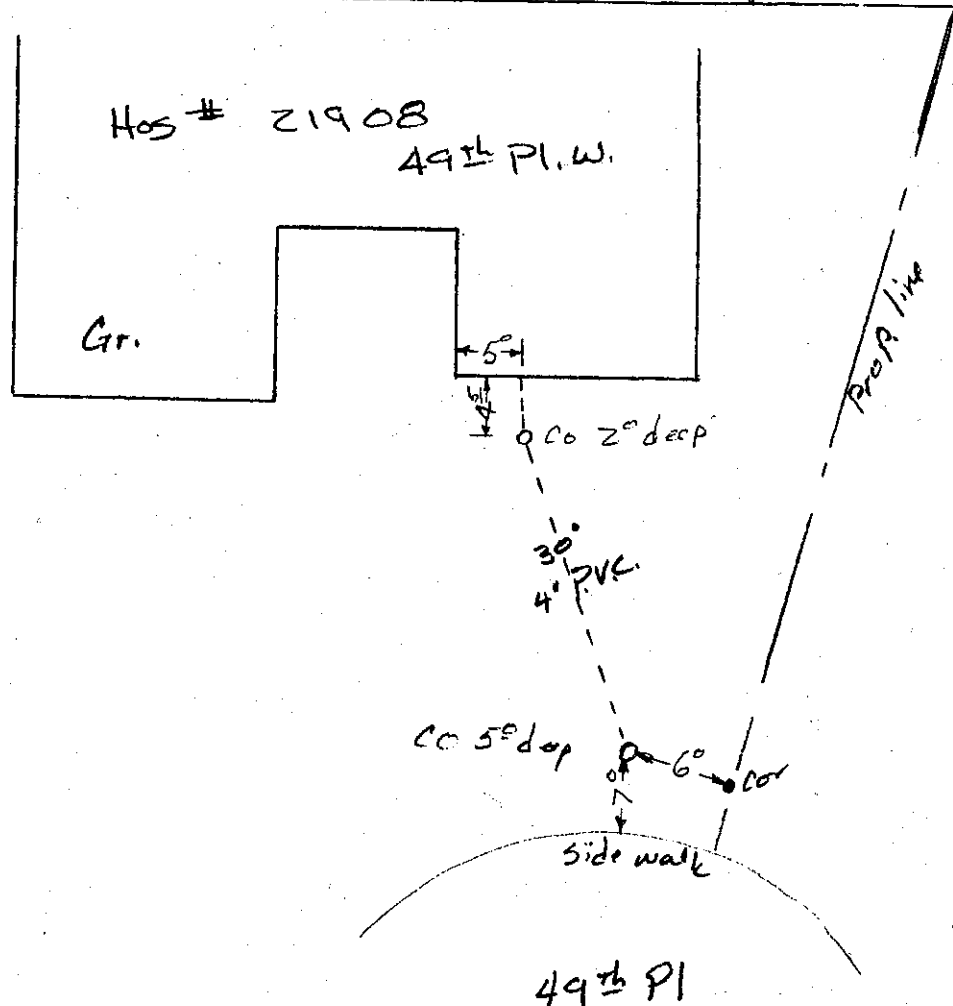 Hos # 21908
49th Pl. W.
Gr.
5⁰
4⁶
CO 2⁰ deep
Prop. line
30'
4" P.V.C.
CO 5⁰ deep
6⁰
Cor
7⁰
Side walk
49th Pl